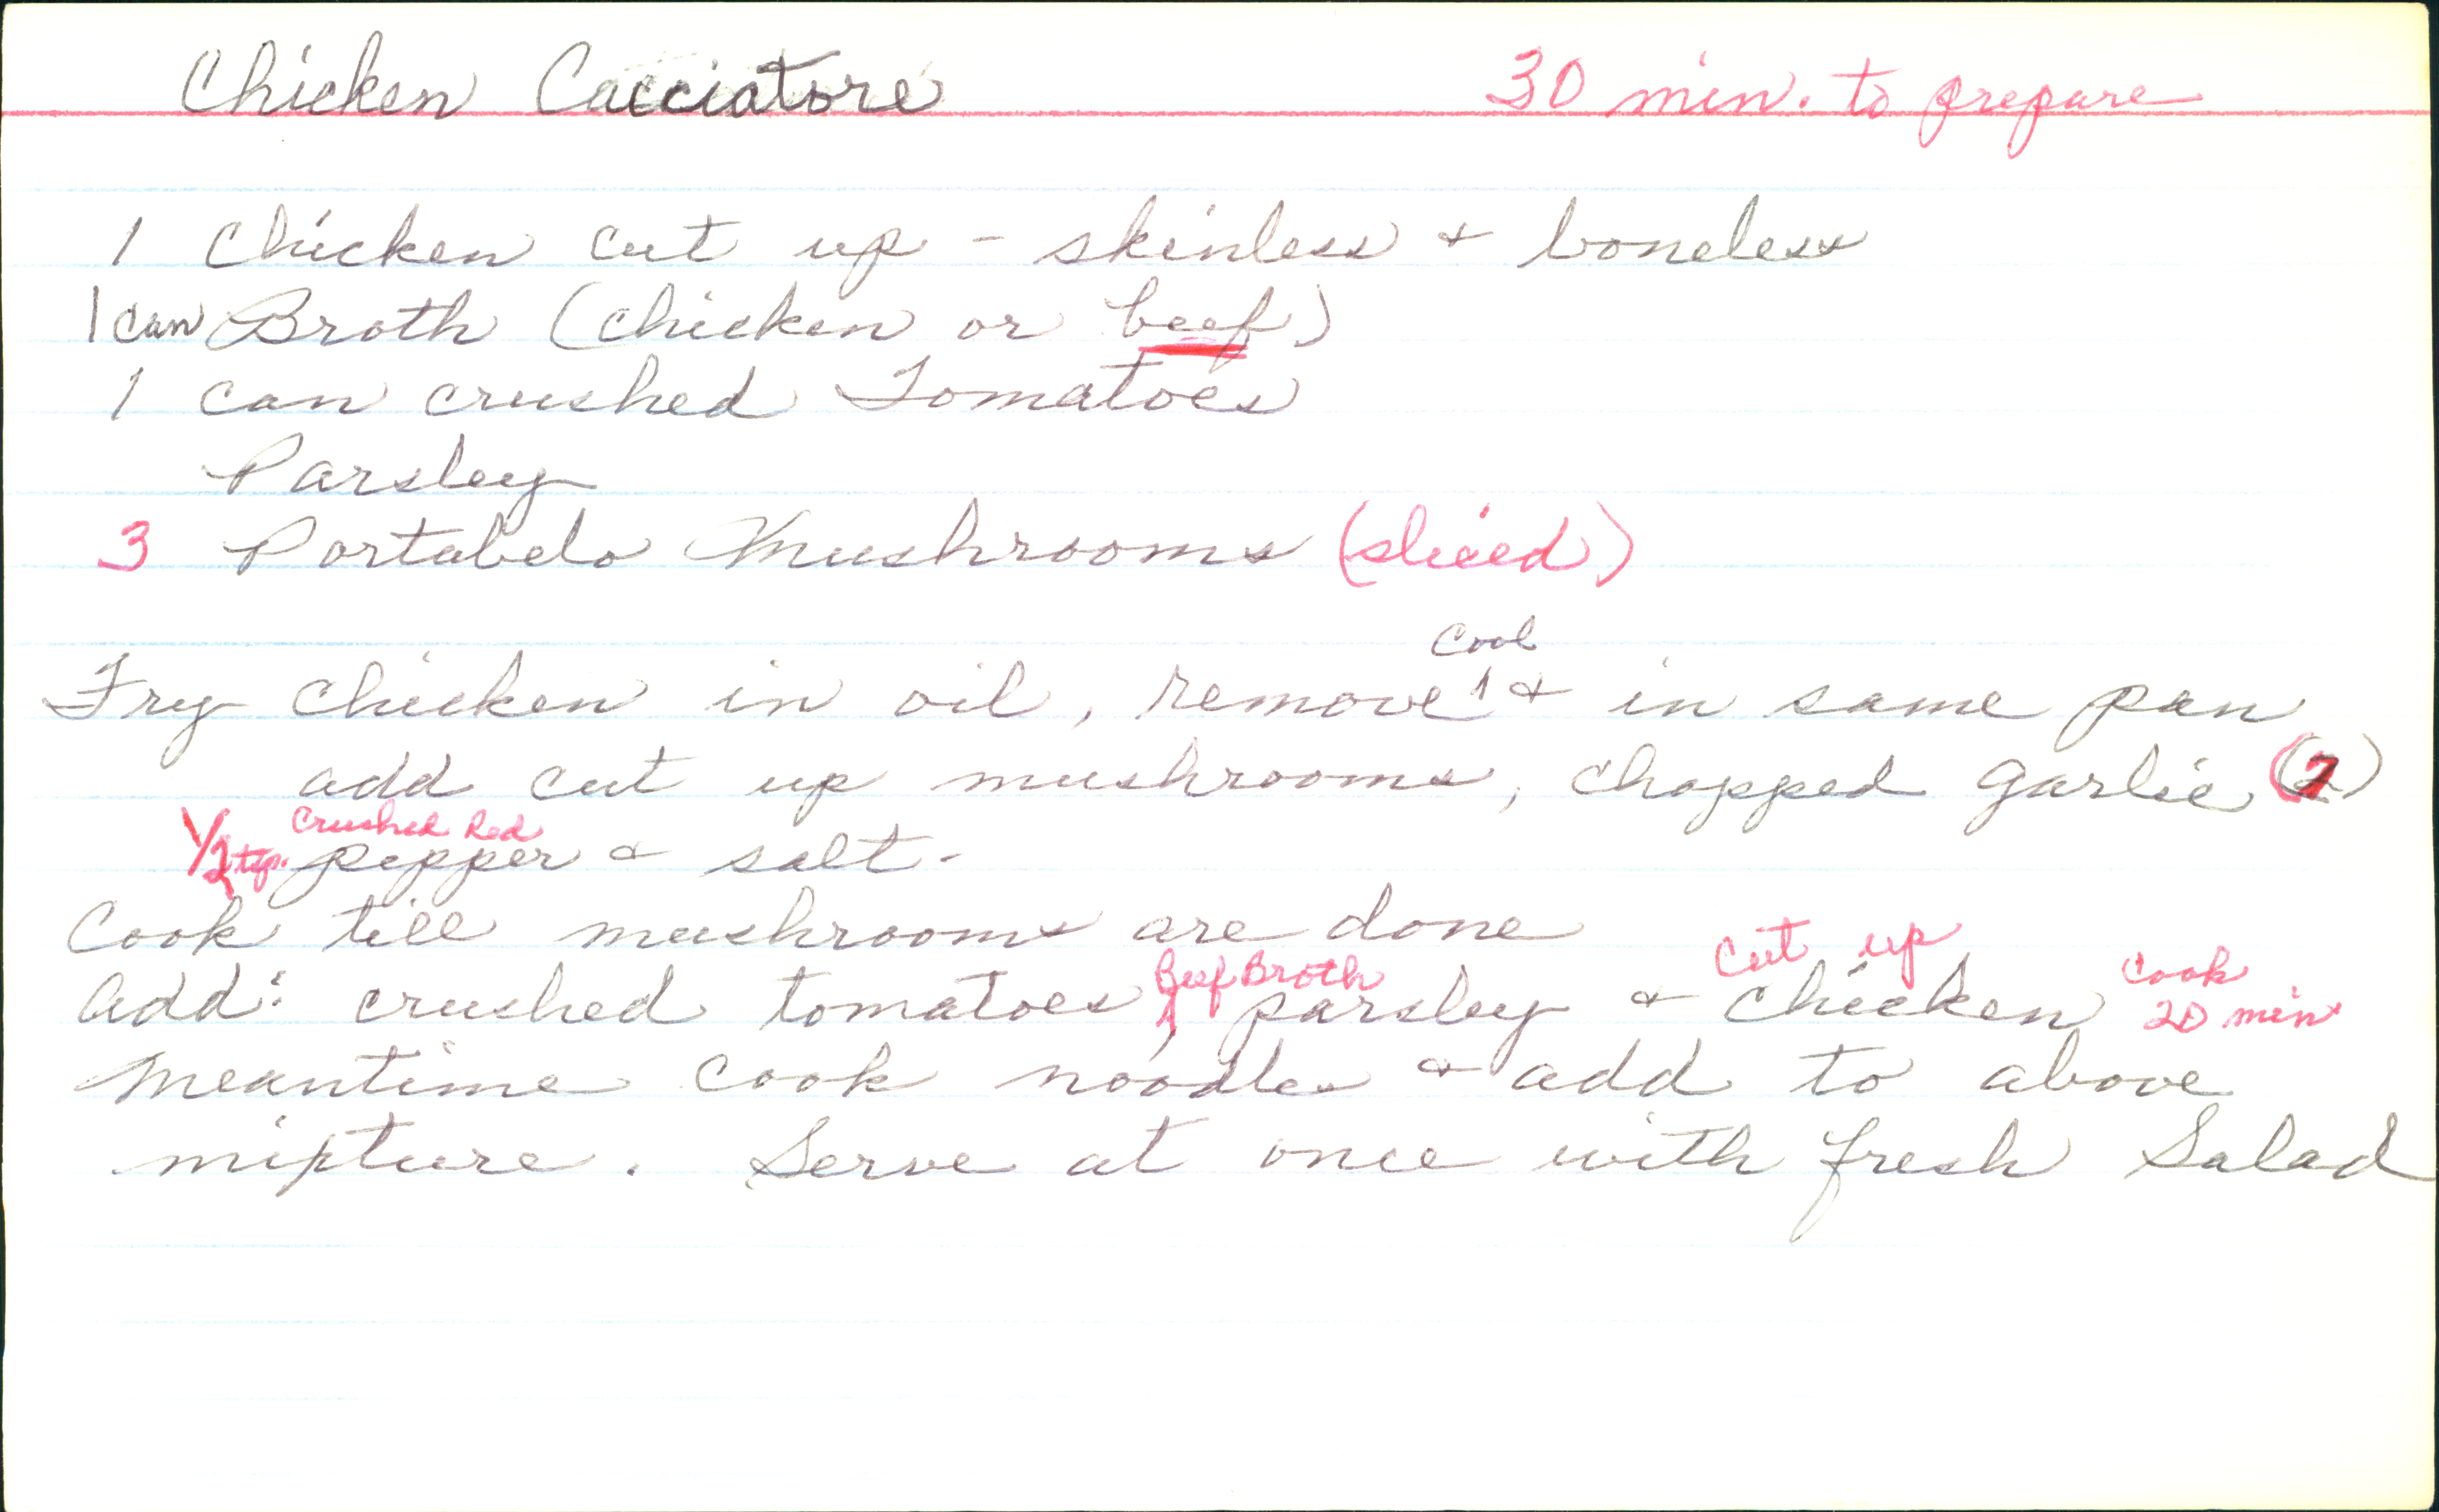 Chicken Cacciatore 30 min. to prepare
1 Chicken cut up - skinless & boneless
1 can Broth (chicken or beef)
1 can crushed Tomatoes
Parsley
3 Portabelo Mushrooms (sliced)
Cool
Fry chicken in oil, remove & in same pan
add cut up mushrooms, chopped garlic
Crushed Red
1/2 tsp. pepper & salt.
Cook till mushrooms are done
Cut up
Beef Broth cook
Add: crushed tomatoes, parsley & chicken 20 min
Meantime cook noodles & add to above
mixture. Serve at once with fresh Salad